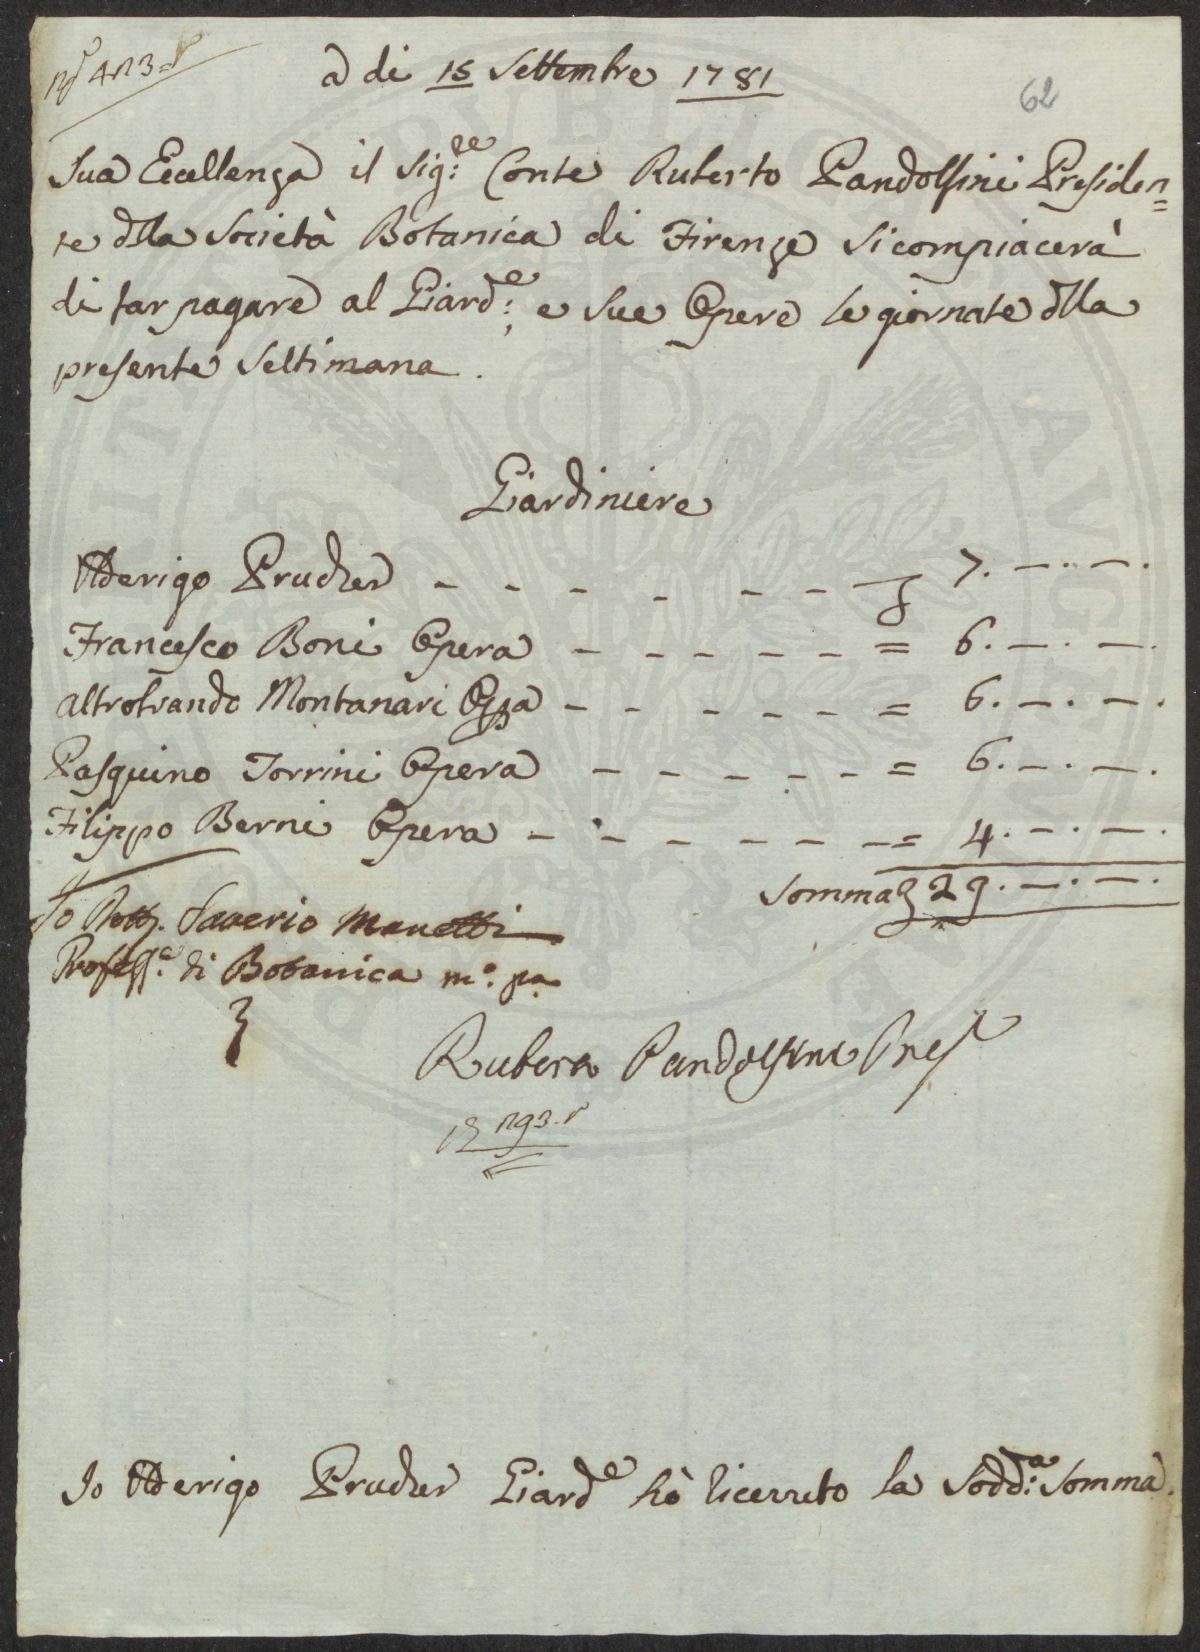 a di 15 Settembre 1781
62
Sua Eccellenza il Sig:re Conte Ruberto Pandolfini Presiden=
te dlla Società Botanica di Firenze si compiacerà
di far pagare al Giard:e e sue Opere le giornate dlla
presente Settimana.
Giardiniere
Adterigo Prucker - - - - - - - 7.—.—.
Francesco Boni Opera - - - - - - = 6.—.—.
Altrobrando Montanari Opa - - - - - - = 6.—.—.
Pasquino Torrini Opera - - - - - - = 6.—.—.
Filippo Berni Opera - - - - - - - = 4.—.—.
Somma 29.—.—.
Io Dott. Saverio Manetti
Profess:e di Botanica m.o pa
Ruberto Pandolfini Pres
Io Adterigo Prucker Giard:e hò ricevuto la Sodd:a Somma.